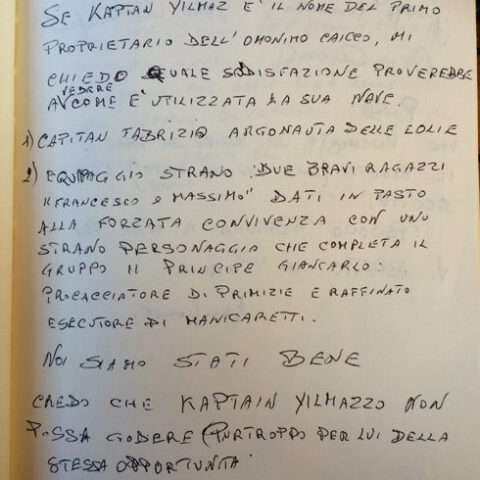 SE KAPTAN YILMAZ E' IL NOME DEL PRIMO
PROPRIETARIO DELL'OMONIMO CAICCO, MI
CHIEDO QUALE SODISFAZIONE PROVEREBBE
VEDERE
A COME E' UTILIZZATA LA SUA NAVE.
1) CAPITAN FABRIZIO ARGONAUTA DELLE EOLIE
2) EQUIPAGGIO STRANO: DUE BRAVI RAGAZZI
"FRANCESCO e MASSIMO" DATI IN PASTO
ALLA FORZATA CONVIVENZA CON UNO
STRANO PERSONAGGIO CHE COMPLETA IL
GRUPPO IL PRINCIPE GIANCARLO:
PROCACCIATORE DI PRIMIZIE E RAFFINATO
ESECUTORE DI MANICARETTI.
NOI SIAMO STATI BENE
CREDO CHE KAPTAIN YILMAZZO NON
POSSA GODERE (PURTROPPO PER LUI DELLA
STESSA OPPORTUNITA'